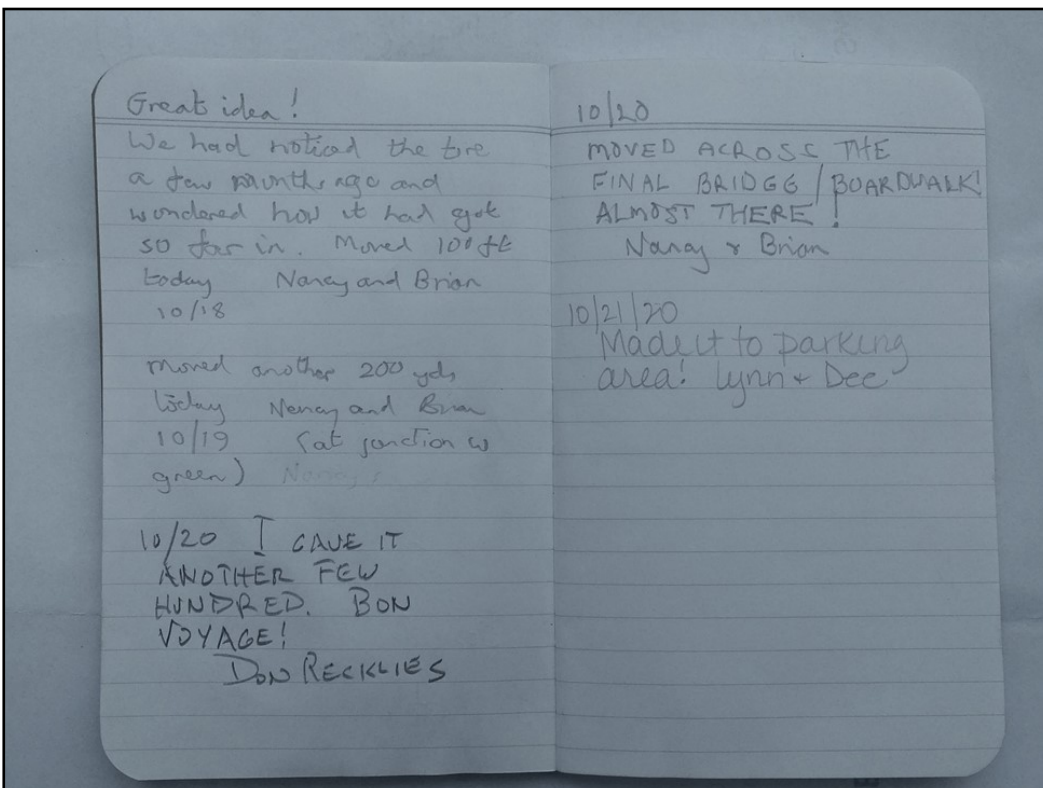 Great idea!
We had noticed the tire
a few months ago and
wondered how it had got
so far in. Moved 100 ft
today Nancy and Brian
10/18
moved another 200 yds
today Nancy and Brian
10/19 (at junction w
green) Nancy
10/20 I GAVE IT
ANOTHER FEW
HUNDRED. BON
VOYAGE!
DON RECKLIES
10/20
MOVED ACROSS THE
FINAL BRIDGE/BOARDWALK!
ALMOST THERE!
Nancy & Brian
10/21/20
Made it to parking
area! Lynn + Dee